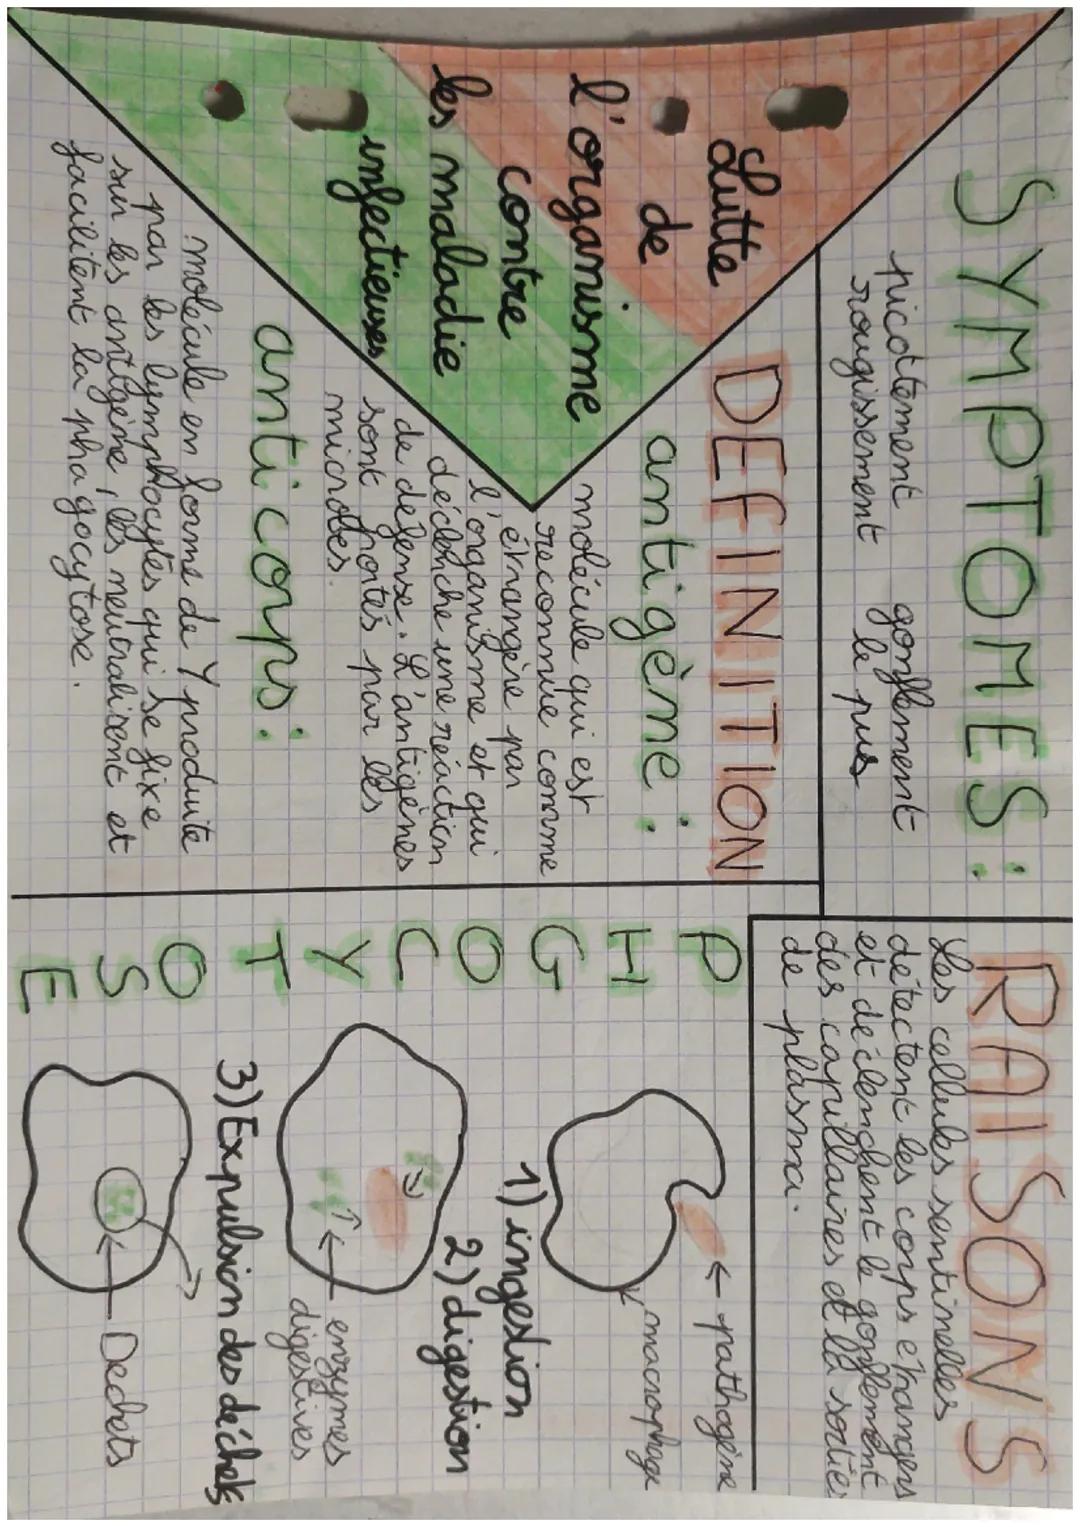 Lutte
de
l'organisme
contre
les maladie
infectieuses
SYMPTOMES :
picotement gonflement
rougissement le pus
DEFINITION
antigène :
molécule qui est
reconnue comme
étrangère par
l'organisme et qui
déclenche une réaction
de défense. L'antigènes
sont portés par les
microbes.
anticorps :
molécule en forme de Y produite
par les lymphocytes qui se fixe
sur les antigène, les neutralisent et
facilitent la phagocytose.
RAISONS
Les cellules sentinelles
détectent les corps étrangers
et déclenchent le gonflement
des capillaires et la sortie
de plasma.
PHGOCYTOSE
← pathogène
macrophage
1) ingestion
2) digestion
enzymes
digestives
3) Expulsion des déchets
Dechets